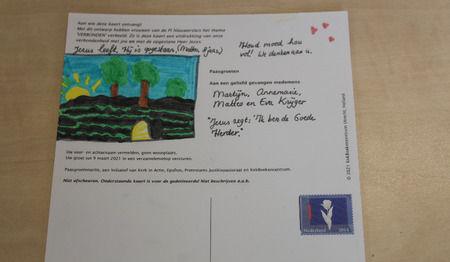 Aan wie deze kaart ontvangt
Met dit ontwerp hebben vrouwen van de PI Nieuwersluis het thema
'VERBONDEN' verbeeld. Zo is deze kaart een uitdrukking van onze
verbondenheid met jou en met de opgestane Heer Jezus.
Jezus leeft, Hij is opgestaan (Mattes, 8 jaar)
Houd moed, hou
vol! We denken aan u.
Paasgroeten
Aan een geliefd gevangen medemens
Martijn, Annemarie,
Mattes en Eva Krijger
"Jezus zegt: 'Ik ben de Goede
Herder.'"
Uw voor- en achternaam vermelden, geen woonplaats.
Uw groet vóór 9 maart 2021 in een verzamelenvelop versturen.
Paasgroetenactie, een initiatief van Kerk in Actie, Epafras, Protestants Justitiepastoraat en KokBoekencentrum.
Niet afscheuren. Onderstaande kaart is voor de gedetineerde! Niet beschrijven a.u.b.
© 2021 KokBoekencentrum Utrecht, Holland
Nederland